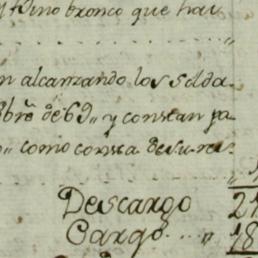 Pino bronco que hai
n alcanzando los solda-
bre de 69,, y constan pa-
,, como consta de su res-
Descargo 21
Cargo ... ,, 18